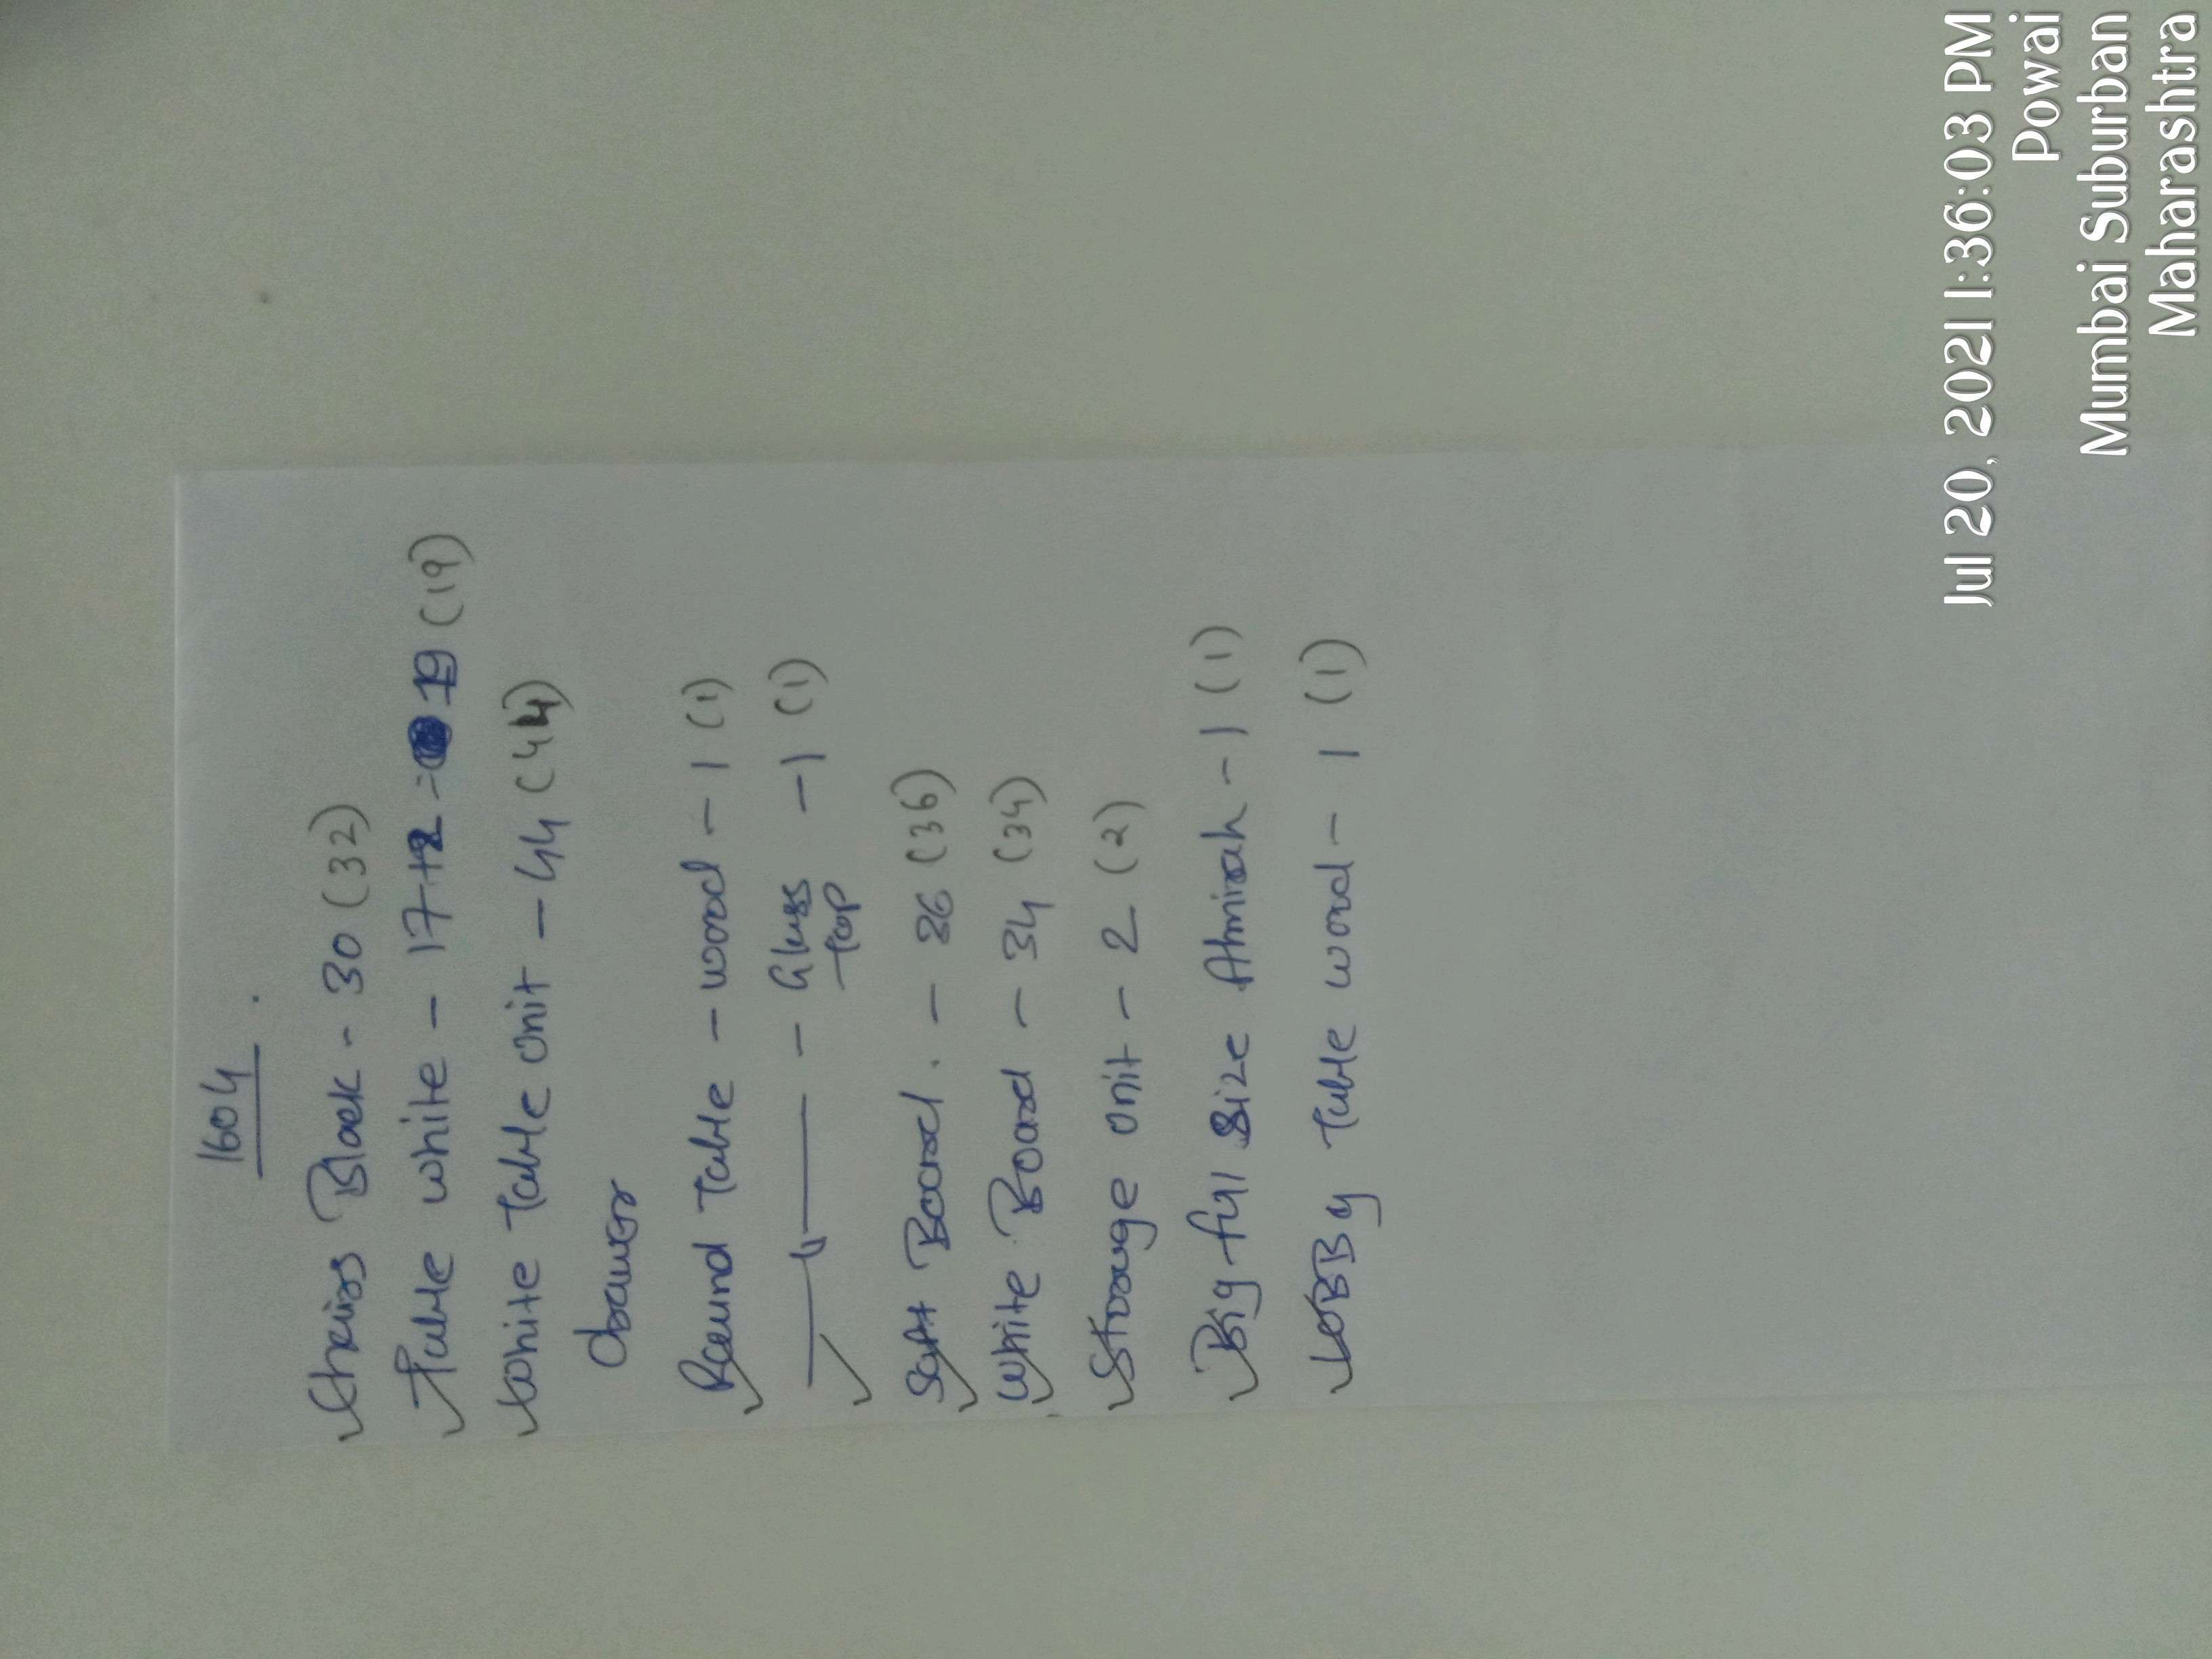 1604
Chairs Black - 30 (32)
Table white - 17+2 = 19 (19)
White Table Unit - 44 (44)
Drawer
Round Table - wood - 1 (1)
—— 〃 —— - Glass -1 (1)
Top
Soft Board. - 36 (36)
White Board - 34 (34)
Strorage Unit - 2 (2)
Big full Size Almirah - 1 (1)
LOBBy Table wood - 1 (1)
Jul 20, 2021 1:36:03 PM
Powai
Mumbai Suburban
Maharashtra